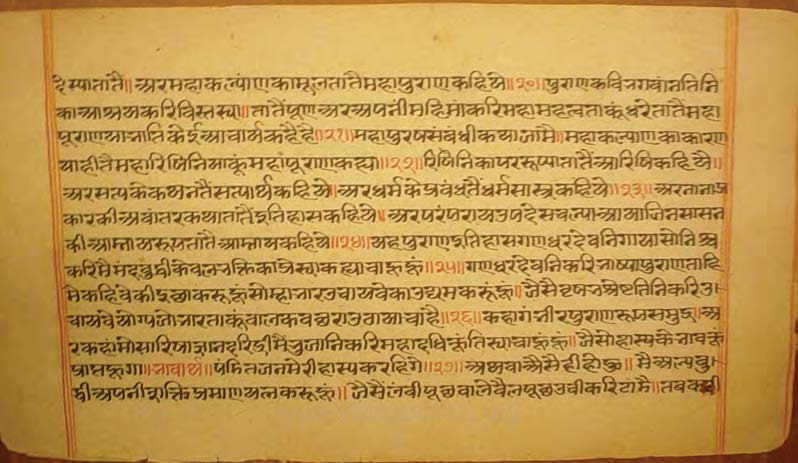 देस्यातातै॥ अर महाकल्याणका मूल तातै महापुराण कहिये॥२०॥ पुराण कवि भगवांन तिनि
का आश्रय करि विस्तस्या॥ तातै पूराण अर अपनी महिमां करि महामहत्वता कूं धरे तातै महा
पूराण या भांति केई आचार्य कहैहै॥२१॥ महापुरष संबंधी कथा जामै॥ महाकल्याणका कारण
याहीतै महा रिषिनि याकूं महांपूराण कह्या॥२२॥ रिषिनिका परूप्या तातै आरिषि कहिये॥
अर सत्यके कथनतै सत्यार्थ कहिये॥ अर धर्मके प्रबंधतै धर्मसास्त्र कहिये॥२३॥ अर नाना प्र
कारकी अवांतर कथा तातै इतिहास कहिये॥ अर परंपराय उपदेस चल्या आया जिनसासन
की आम्नाय रूप तातै आम्नाय कहिये॥२४॥ यह पुराण इतिहास गणधरदेवनि गाया सो निश्च
करि मै मंदबुद्धी केवल भक्तिका प्रेस्या कह्या चाहूं हूं॥२५॥ गणधरदेवनि करि भाष्या पुराण ताहि
मै कहिवेकी इछा करूं हूं सो म्हा भार उचायवेका उद्यम करूं हूं॥ जैसै वृषभ श्रेष्ट तिनि करि उ
चायवे योग्य जो भार ताकूं बालक वछरा उचाया चाहै॥२६॥ कहा गंभीर पुराण रूप समुद्र॥ अ
र कहां मो सारिषा ज्ञान दरिद्री मै भुजानि करि महा दधिकूं तिस्या चाहूं हूं॥ जैसो हास्यके भावकूं
प्राप्त हूंगा॥ भावार्थ॥ पंडित जन मेरी हास्य करहिगे॥२७॥ अथवा अैसै ही होहु॥ मै अल्प बु
द्धी अपनी शक्ति प्रमाण यत्न करूं हूं॥ जैसै लंबी पूछ वाले बैल पूछ उंची करि टांमै॥ तब